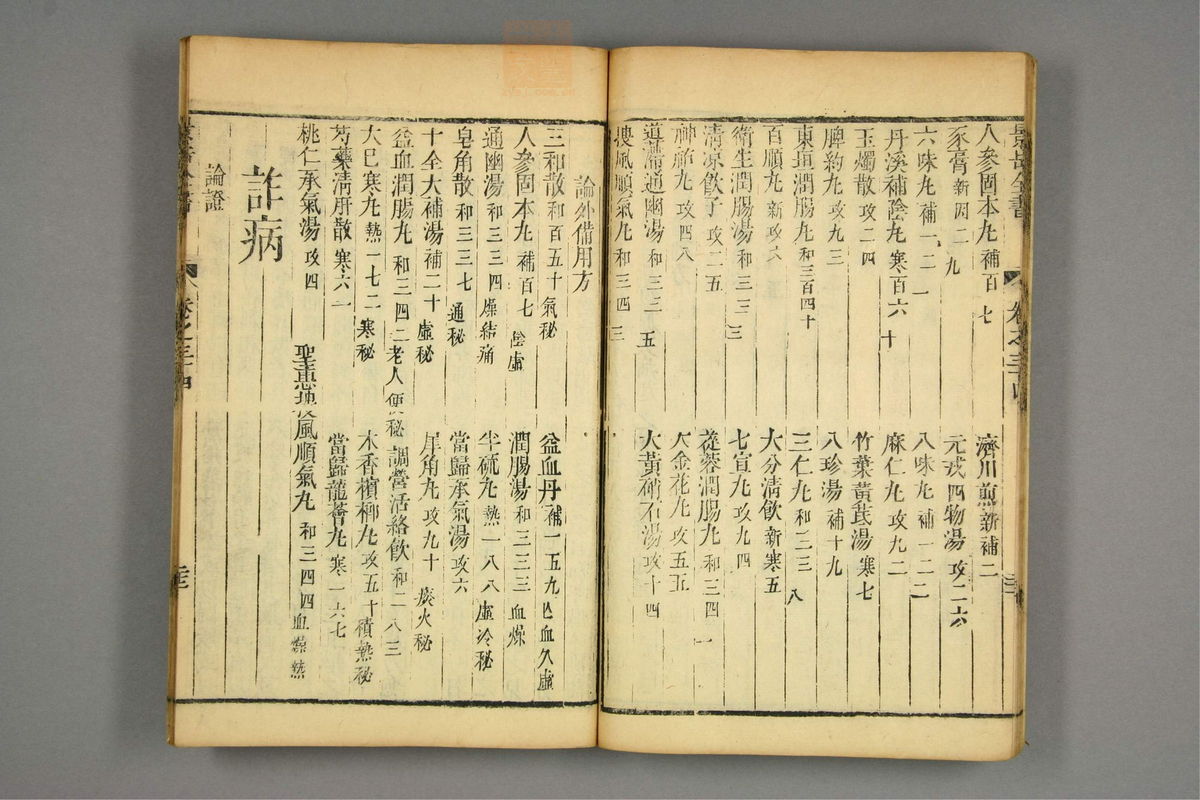 景岳全書 卷之三十四
人參固本丸 補百七 濟川煎 新補二
豕膏 新因二九 元戎四物湯 攻二六
六味丸 補一二一 八味丸 補一二二
丹溪補陰丸 寒百六十 麻仁丸 攻九二
玉燭散 攻二四 竹葉黃芪湯 寒七
脾約丸 攻九三 八珍湯 補十九
東垣潤腸丸 和三百四十 三仁丸 和三三八
百順丸 新攻六 大分清飲 新寒五
衛生潤腸湯 和三三三 七宣丸 攻九四
清凉飲子 攻二五 蓯蓉潤腸丸 和三四一
神芎丸 攻四八 大金花丸 攻五五
導滯通幽湯 和三三五 大黃硝石湯 攻十四
搜風順氣丸 和三四三
論外備用方
三和散 和百五十 氣秘 益血丹 補一五九 亡血久虛
人參固本丸 補百七 陰虛 潤腸湯 和三三三 血燥
通幽湯 和三三四 燥結痛 半硫丸 熱一八八 虛冷秘
皂角散 和三三七 通秘 當歸承氣湯 攻六
十全大補湯 補二十 虛秘 犀角丸 攻九十 痰火秘
益血潤腸丸 和三四二 老人便秘 調營活絡飲 和二八三
大巳寒丸 熱一七二 寒秘 木香檳榔丸 攻五十 積熱秘
芍藥清肝散 寒六一 當歸龍薈丸 寒一六七
桃仁承氣湯 攻四 聖惠搜風順氣丸 和三四四 血燥熱
詐病
論證